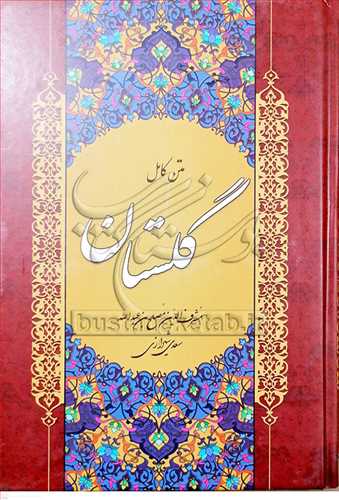 متن کامل
گلستان
مشرف الدین مصلح بن عبدالله
سعدی شیرازی
bustaneketab.ir